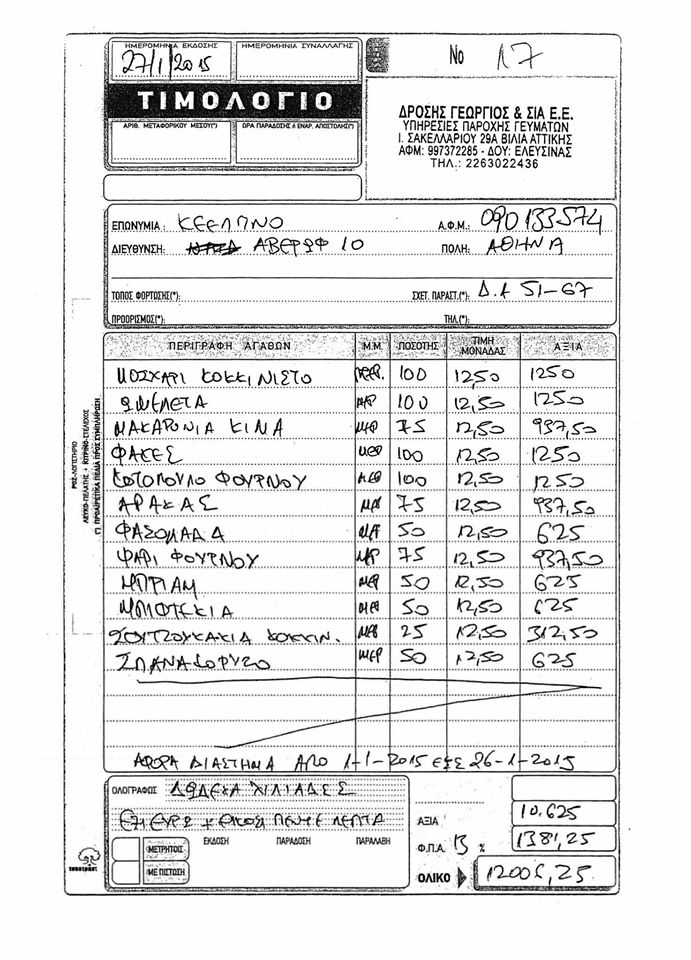 ΗΜΕΡΟΜΗΝΙΑ ΕΚΔΟΣΗΣ ΗΜΕΡΟΜΗΝΙΑ ΣΥΝΑΛΛΑΓΗΣ
27/1/2015
Νο 17
ΤΙΜΟΛΟΓΙΟ
ΑΡΙΘ. ΜΕΤΑΦΟΡΙΚΟΥ ΜΕΣΟΥ(*) ΩΡΑ ΠΑΡΑΔΟΣΗΣ ή ΕΝΑΡ. ΑΠΟΣΤΟΛΗΣ(*)
ΔΡΟΣΗΣ ΓΕΩΡΓΙΟΣ & ΣΙΑ Ε.Ε.
ΥΠΗΡΕΣΙΕΣ ΠΑΡΟΧΗΣ ΓΕΥΜΑΤΩΝ
Ι. ΣΑΚΕΛΛΑΡΙΟΥ 29Α ΒΙΛΙΑ ΑΤΤΙΚΗΣ
ΑΦΜ: 997372285 - ΔΟΥ: ΕΛΕΥΣΙΝΑΣ
ΤΗΛ.: 2263022436
ΕΠΩΝΥΜΙΑ: ΚΕΕΛΠΝΟ Α.Φ.Μ.: 090133574
ΔΙΕΥΘΥΝΣΗ: ΑΒΕΡΩΦ 10 ΠΟΛΗ: ΑΘΗΝΑ
ΤΟΠΟΣ ΦΟΡΤΩΣΗΣ(*): ΣΧΕΤ. ΠΑΡΑΣΤ.(*): Δ.Α 51-67
ΠΡΟΟΡΙΣΜΟΣ(*): ΤΗΛ.(*):
ΠΕΡΙΓΡΑΦΗ ΑΓΑΘΩΝ Μ.Μ. ΠΟΣΟΤΗΣ ΤΙΜΗ ΜΟΝΑΔΑΣ ΑΞΙΑ
ΜΟΣΧΑΡΙ ΚΟΚΚΙΝΙΣΤΟ ΜΕΡ. 100 12,50 1250
ΟΜΕΛΕΤΑ ΜΕΡ 100 12,50 1250
ΜΑΚΑΡΟΝΙΑ ΚΙΜΑ ΜΕΡ 75 12,50 937,50
ΦΑΚΕΣ ΜΕΡ 100 12,50 1250
ΚΟΤΟΠΟΥΛΟ ΦΟΥΡΝΟΥ ΜΕΡ 100 12,50 1250
ΑΡΑΚΑΣ ΜΕΡ 75 12,50 937,50
ΦΑΣΟΛΑΔΑ ΜΕΡ 50 12,50 625
ΨΑΡΙ ΦΟΥΡΝΟΥ ΜΕΡ 75 12,50 937,50
ΜΠΡΙΑΜ ΜΕΡ 50 12,50 625
ΜΠΙΦΤΕΚΙΑ ΜΕΡ 50 12,50 625
ΣΟΥΤΖΟΥΚΑΚΙΑ ΚΟΚΚΙΝ. ΜΕΡ 25 12,50 312,50
ΣΠΑΝΑΚΟΡΥΖΟ ΜΕΡ 50 12,50 625
ΑΦΟΡΑ ΔΙΑΣΤΗΜΑ ΑΠΟ 1-1-2015 ΕΩΣ 26-1-2015
ΡΟΖ-ΛΟΓΙΣΤΗΡΙΟ
ΛΕΥΚΟ-ΠΕΛΑΤΗΣ • ΚΙΤΡΙΝΟ-ΣΤΕΛΕΧΟΣ
(*) ΠΡΟΑΙΡΕΤΙΚΑ ΠΕΔΙΑ ΠΡΟΣ ΣΥΜΠΛΗΡΩΣΗ
ΟΛΟΓΡΑΦΩΣ ΔΩΔΕΚΑ ΧΙΛΙΑΔΕΣ
ΕΞΙ ΕΥΡΩ + ΕΙΚΟΣΙ ΠΕΝΤΕ ΛΕΠΤΑ
ΑΞΙΑ 10.625
ΕΚΔΟΣΗ ΠΑΡΑΔΟΣΗ ΠΑΡΑΛΑΒΗ
Φ.Π.Α. 13 % 1381,25
ΜΕΤΡΗΤΟΙΣ
ΜΕ ΠΙΣΤΩΣΗ
ΟΛΙΚΟ 12006,25
τυποτραστ